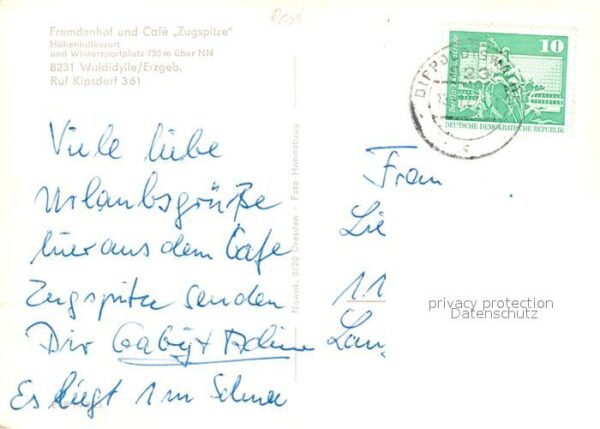 Fremdenhof und Café „Zugspitze"
Höhenluftkurort
und Wintersportplatz 750 m über NN
8231 Waldidylle/Erzgeb.
Ruf Kipsdorf 361
10
Berlin
DEUTSCHE DEMOKRATISCHE REPUBLIK
Viele liebe
Urlaubsgrüße
hier aus dem Cafe
Zugspitze senden
Dir Gaby +
Es liegt 1m Schnee
Nowak, 8020 Dresden - Foto Handabzug
Frau
Lie
11
Lan
privacy protection
Datenschutz